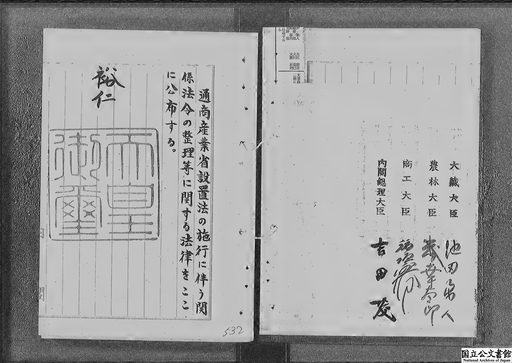 大蔵大臣 池田勇人
農林大臣
商工大臣
内閣総理大臣 吉田茂
通商産業省設置法の施行に伴う関
係法令の整理等に関する法律をここ
に公布する。
裕仁
天皇
御璽
532
国立公文書館
National Archives of Japan